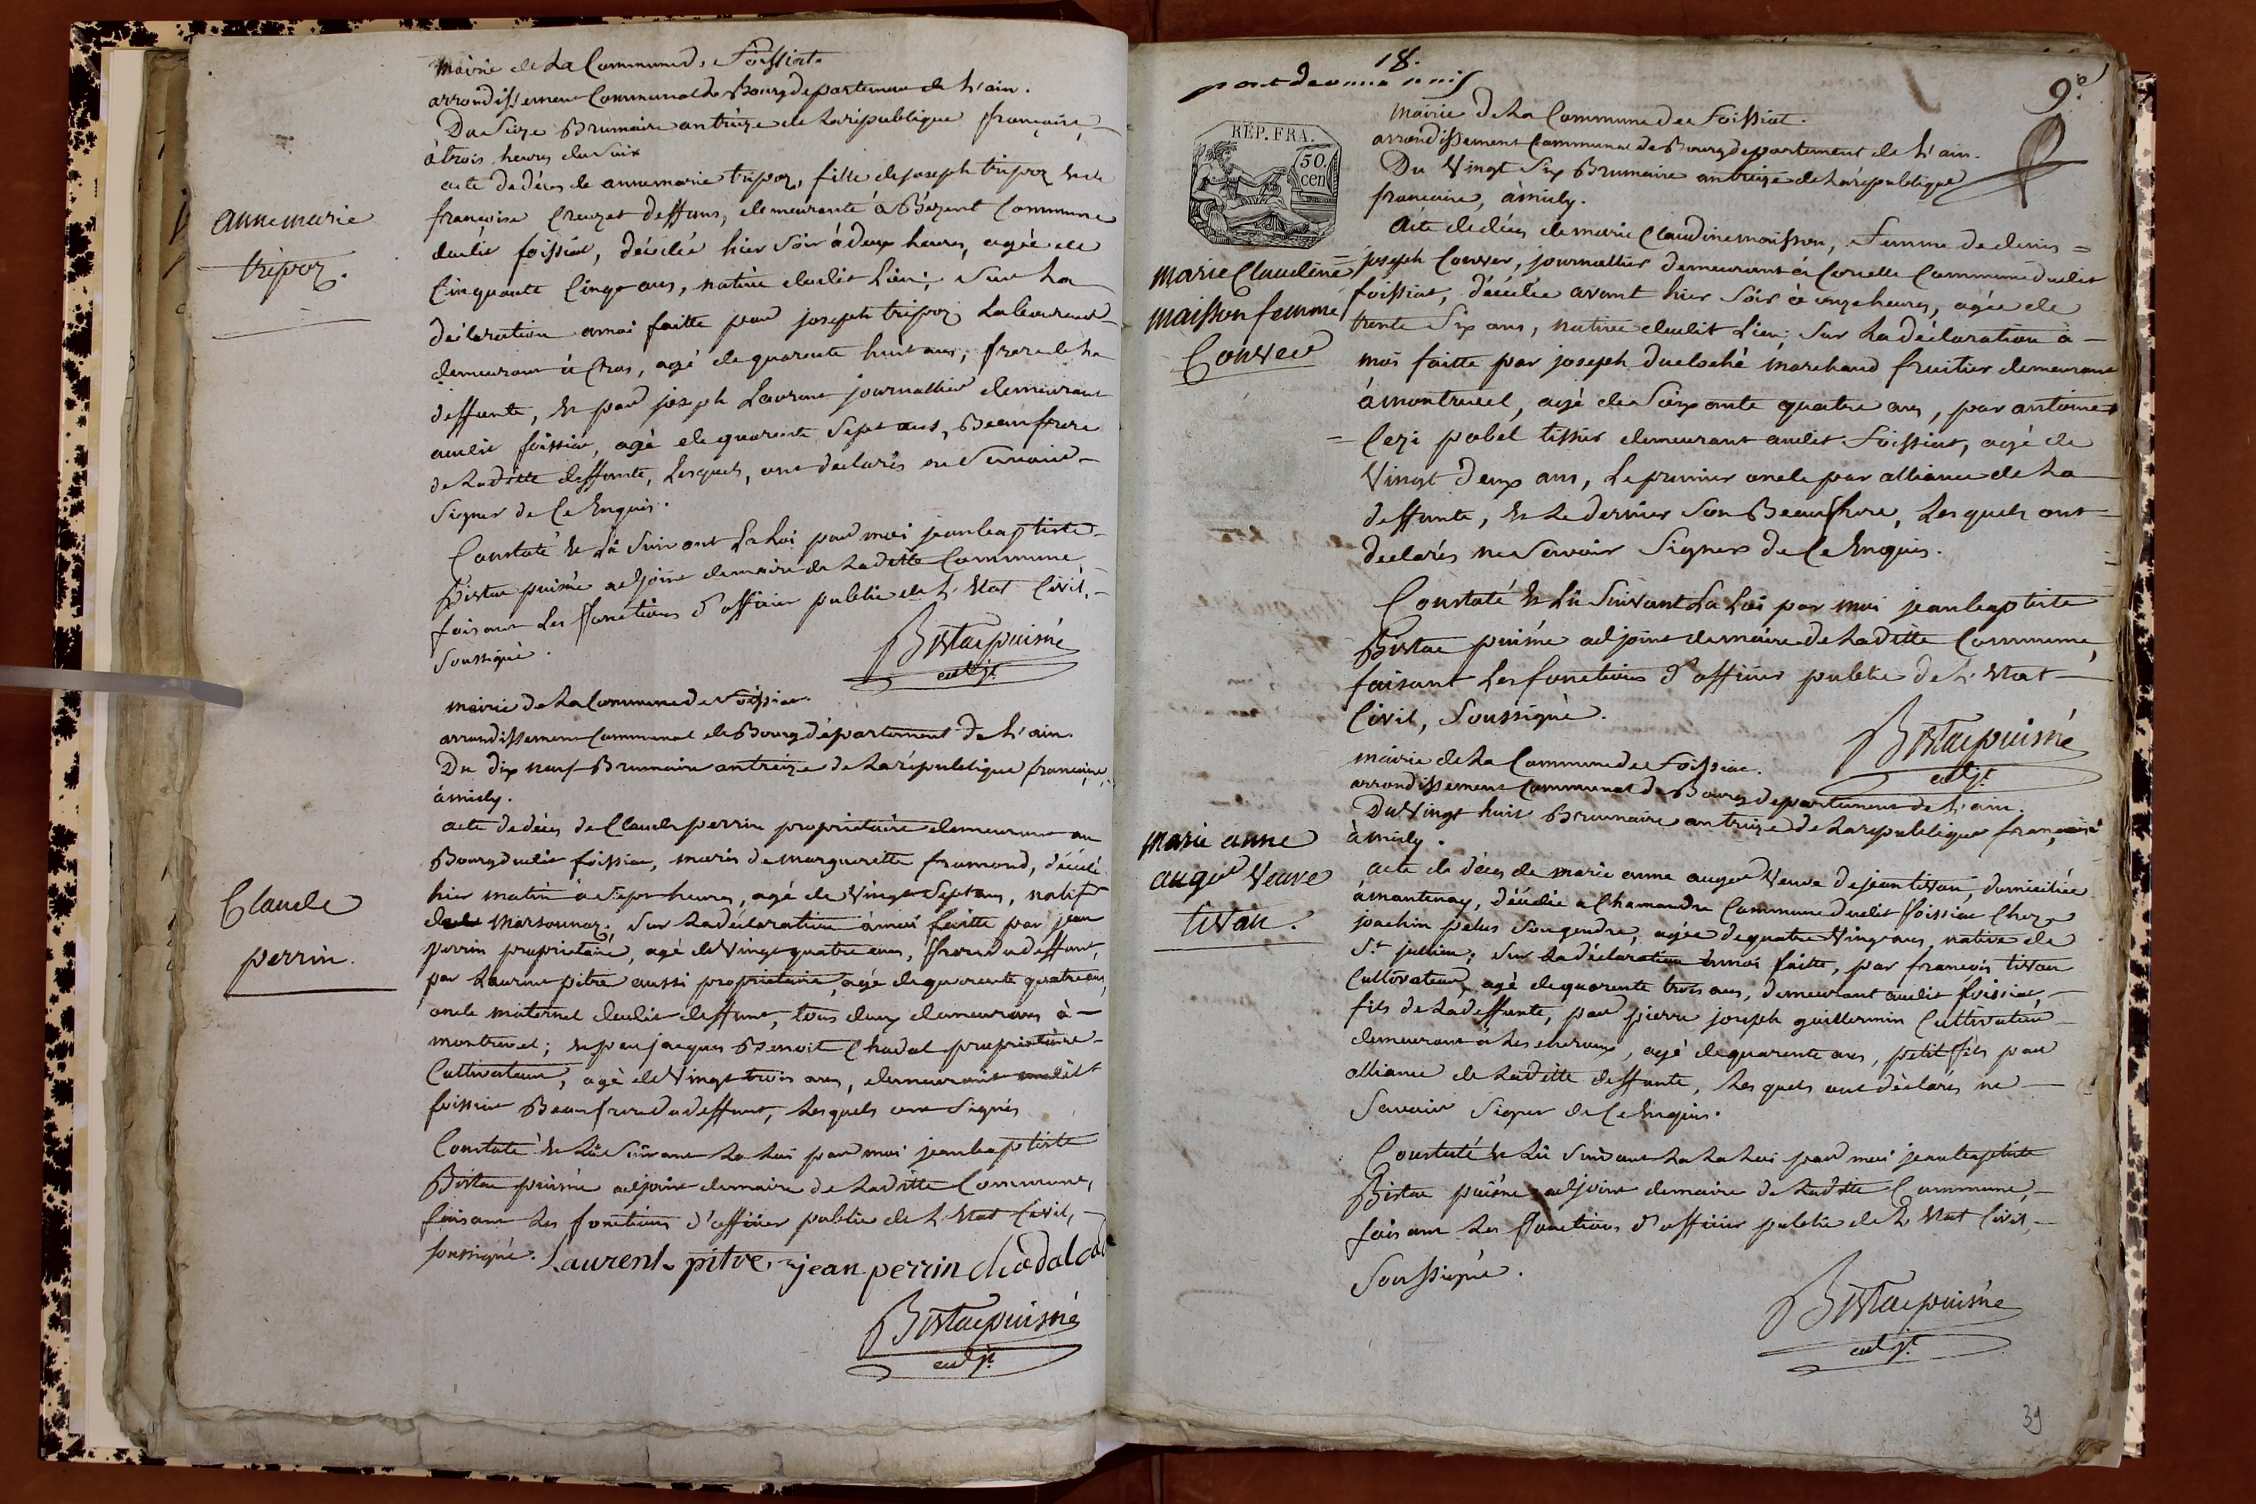 mairie de La Commune de Foissiat
arrondissement Communal de Bourg departement de L'ain.
Du Seize Brumaire an treize de La république française,
à trois heures du Soir
acte de décès de anne marie tripoz, fille de joseph tripoz et de
françoise Creuzet deffuns, demeurante à Bézent Commune
dudit foissiat, décédée hier Soir à deux heures, agée de
Cinquante Cinq ans, native dudit Lieu; Sur La
déclaration a moi faitte par joseph tripoz Laboureur
demeurant à Cras, agé de quarante huit ans, frere de La
deffunte, et par joseph Laurent journallier demeurant
audit foissiat, agé de quarante Sept ans, Beaufrere
de Laditte deffunte, Lesquels, ont déclarés ne Savoir
Signer de Ce Enquis.
Constaté et Lû Suivant La Loi par moi jean baptiste
Bistac puisné adjoint de maire de Laditte Commune,
faisant Les fonctions d'officier public de L'Etat Civil,
Soussigné.
Bistac puisné
adjt
annemarie
tripoz.
mairie de La Commune de Foissiat.
arrondissement Communal de Bourg département de L'ain.
Du dix neuf Brumaire an treize de La république française,
à midy.
acte de décès de Claude perrin propriétaire demeurant au
Bourg dudit foissiat, maris de margueritte framond, décédé
hier matin à Sept heures, agé de Vingt Sept ans, natif
de Marsonnaz; Sur La déclaration à moi faitte par jean
perrin propriétaire, agé de Vingt quatre ans, frere du deffunt,
par Laurent pitre aussi propriétaire, agé de quarente quatre ans,
oncle maternel dudit deffunt, tous deux demeurans à
montrevel; et par jacques Benoit Chadal propriétaire
Cultivateur, agé de Vingt trois ans, demeurant audit
foissiat Beaufrere du deffunt, Lesquels ont Signés
Constaté et Lû Suivant La Loi par moi jean baptiste
Bistac puisné adjoint de maire de Laditte Commune,
faisant Les fonctions d'officier public de L'Etat Civil,
soussigné. Laurent pitre, jean perrin
Bistac puisné
adjt
Claude
perrin.
18.
9.e
RÉP. FRA.
50.
cen
mairie de La Commune de Foissiat.
arrondissement Communal de Bourg departement de L'ain.
Du Vingt Six Brumaire an treize de La république
francaise, à midy.
Acte de décès de marie Claudine moisson, Femme de denis =
= joseph Conver, journallier demeurant à Corcelle Commune dudit
foissiat, décédée avant hier Soir à onze heures, agée de
trente Six ans, native dudit Lieu; Sur La déclaration à
moi faitte par joseph Dueloché marchand fruitier demeurant
à montrevel, agé de Soixante quatre ans, par antoine
pobel tissier demeurant audit Foissiat, agé de
Vingt deux ans, Le premier oncle par alliance de La
deffunte, et Le dernier Son Beaufrere, Lesquels ont
declarés ne Savoir Signer de Ce Enquis.
Constaté et Lû Suivant La Loi par moi jean baptiste
Bistac puisné adjoint de maire de Laditte Commune,
faisant Les fonctions d'officier public de L'Etat
Civil, Soussigné.
Bistac puisné
adjt
marie Claudine
maisson femme
Conver
mairie de La Commune de Foissiat.
arrondissement Communal de Bourg departement de L'ain.
Du Vingt huit Brumaire an treize de La republique française
à midy.
acte de décès de marie anne auger Veuve de jean tivan, domiciliée
à mantenay, décédée a Chamandre Commune dudit foissiat Chez
joachin pelus Son gendre, agée de quatre Vingt ans, native de
St jullien; Sur La déclaration à moi faitte, par francois tivan
Cultivateur, agé de quarente trois ans, demeurant audit foissiat,
fils de La deffunte, par pierre joseph guillermin Cultivateur
demeurant à Lescheroux, agé de quarente ans, petit fils par
alliance de Laditte deffunte, Lesquels ont déclarés ne
Savoir Signer de Ce Enquis.
Constaté et Lû Suivant La La Loi par moi jean baptiste
Bistac puisné adjoint de maire de Laditte Commune,
faisant Les fonctions d'officier public de L'Etat Civil,
Soussigné.
Bistac puisné
adjt
marie anne
auger Veuve
tivan.
39